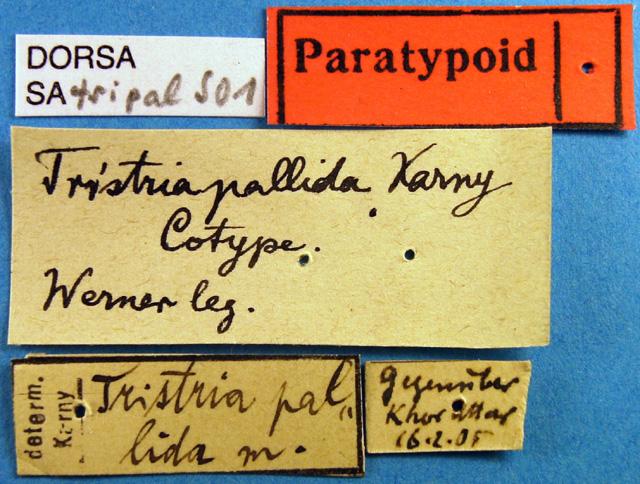 DORSA
SA tripal S01
Paratypoid
Tristria pallida Karny
Cotype.
Werner leg.
determ.
Karny
Tristria pal„
lida m.
Gegenüber
Khor Attar
16.2.05